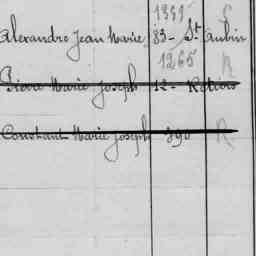 1999 S
Alexandre Jean Marie 83 - St Aubin
1265 R
Pierre Marie Joseph 12 - Ratiers
Constant Marie Joseph 390 R